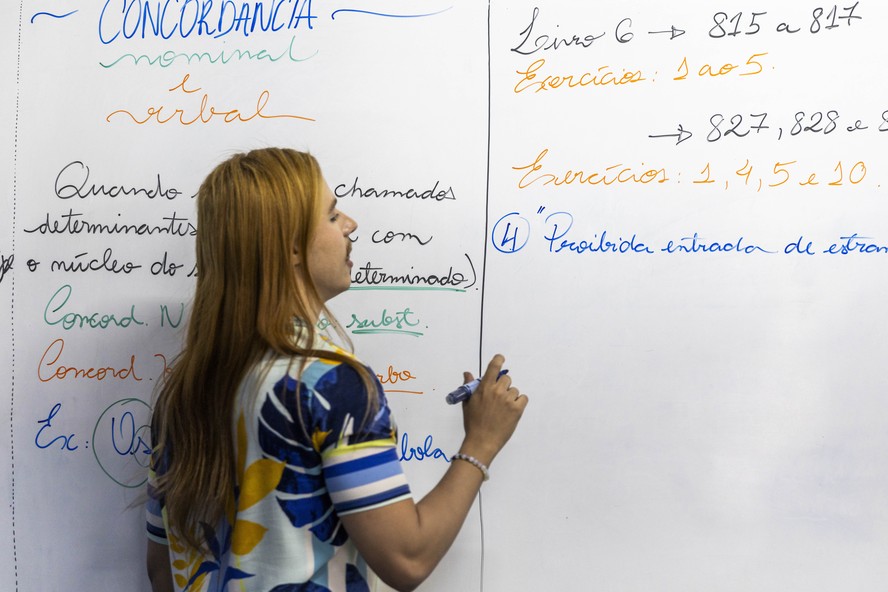 CONCORDÂNCIA
nominal
e
verbal
Quando chamados
determinantes com
o núcleo do determinado).
Concord. N o subst.
Concord.
Ex: Os bola
Livro 6 → 815 a 817
Exercícios: 1 ao 5.
→ 827, 828 e
Exercícios: 1, 4, 5 e 10.
4 "Proibida entrada de